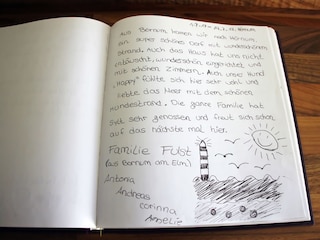 Aus Bornum, kamen wir nach Hörnum,
ein super schönes Dorf mit wunderschönem
Strand. Auch das Haus hat uns nicht
enttäuscht, wunderschön eingerichtet, und
mit schönen Zimmern. Auch unser Hund
„Happy" fühlte sich hier sehr wohl und
liebte das Meer mit dem schönen
Hundestrand. Die ganze Familie hat
sehr genossen und freut sich schon
auf das nächste mal hier.
Familie Fulst
(aus Bornum am Elm)
Antonia
Andreas
Corinna
Amelie